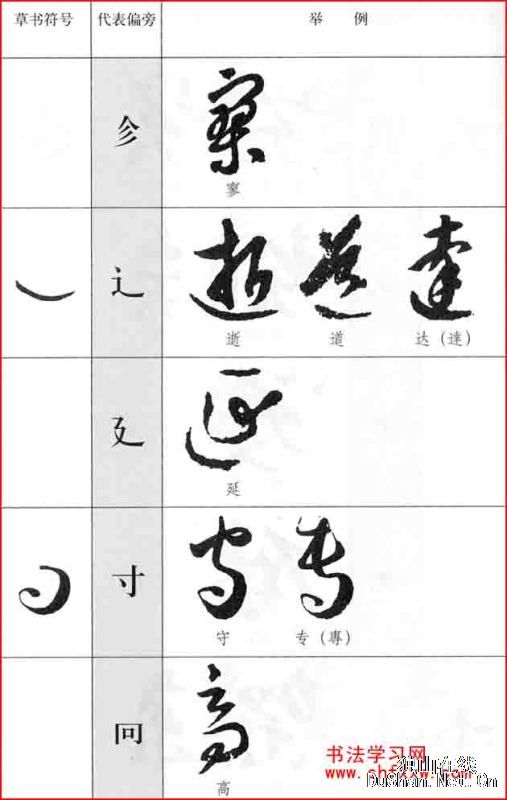 草书符号 代表偏旁 举 例
寥
辶
逝 道 达(達)
廴
延
寸
守 专(專)
高
书法学习网
独山在线
DuShan.Net.Cn